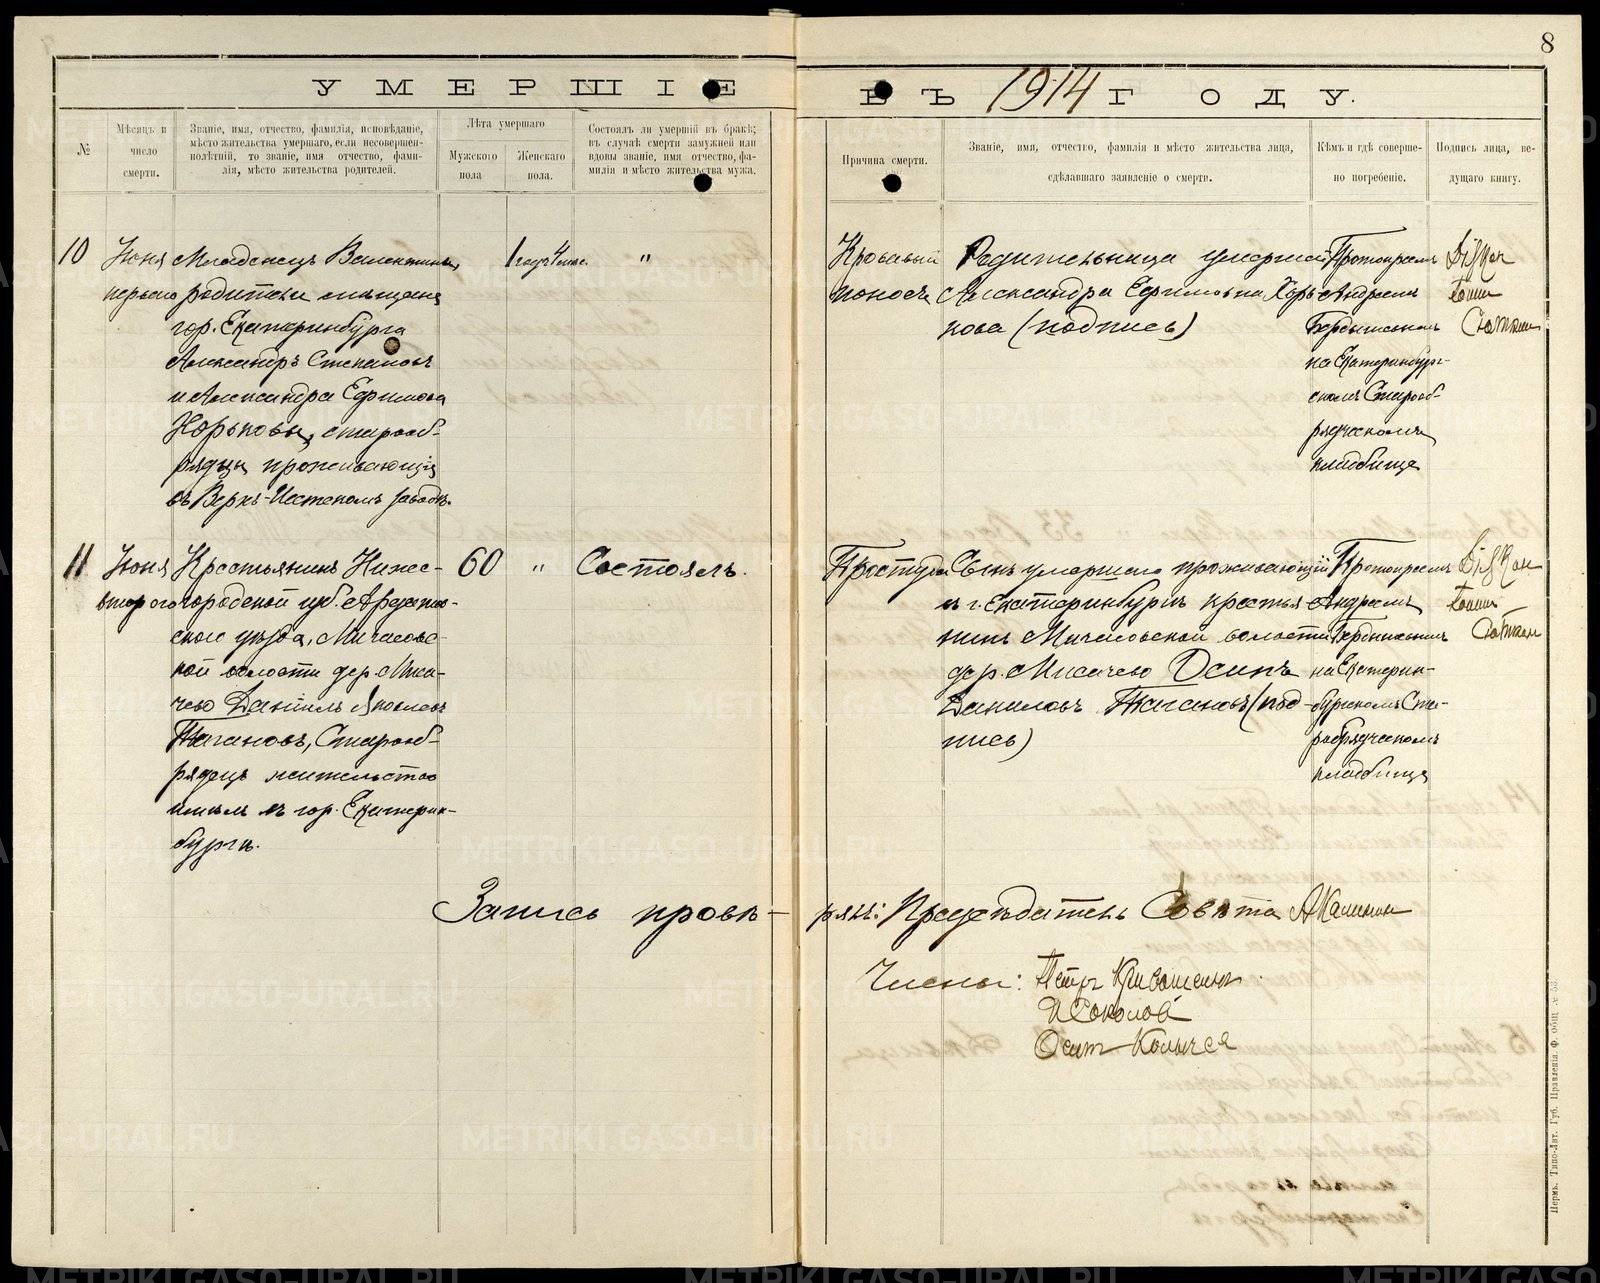 8
УМЕРШІЕ ВЪ 1914 ГОДУ.
№
Мѣсяцъ и
число
смерти.
Званіе, имя, отчество, фамилія, исповѣданіе,
мѣсто жительства умершаго, если несовершен-
нолѣтній, то званіе, имя отчество, фами-
лія, мѣсто жительства родителей.
Лѣта умершаго
Мужского
пола
Женскаго
пола.
Состоялъ ли умершій въ бракѣ;
въ случаѣ смерти замужней или
вдовы званіе, имя отчество, фа-
милія и мѣсто жительства мужа.
Причина смерти.
Званіе, имя, отчество, фамилія и мѣсто жительства лица,
сдѣлавшаго заявленіе о смерти.
Кѣмъ и гдѣ соверше-
но погребеніе.
Подпись лица, ве-
дущаго книгу.
10
Іюня
перваго
Младенецъ Валентина,
родители мѣщане
гор. Екатеринбурга
Александръ Степановъ
и Александра Ефимова
Хорьковы, старооб-
рядцы проживающіе
въ Верхъ-Исетскомъ заводѣ.
1 годъ 4 мѣс.
"
Кровавый
поносъ
Родительница умершей
Александра Ефимовна Хорь-
кова (подпись)
Протоіереемъ
Андреемъ
на Екатеринбург-
скомъ Старооб-
рядческомъ
кладбище
11
Іюня
второго
Крестьянинъ Нижего-
городской губ. Ардатов-
скаго уѣзда, Мичалов-
ской волости дер. Миса-
чево Даніилъ Яковлевъ
Тагановъ, Старооб-
рядецъ жительство
имѣлъ въ гор. Екатерин-
бургѣ.
60
"
Состоялъ.
Простуда
Сынъ умершаго проживающій
въ г. Екатеринбургѣ крестья-
нинъ волости
дер. Мисачево Осипъ
Даниловъ Тагановъ (под-
пись)
Протоіереемъ
Андреемъ
на Екатерин-
бургскомъ Ста-
рообрядческомъ
кладбище
Запись провѣ-
рялъ: Предсѣдатель Совѣта А Калинин
Члены: Петръ
И Соколов
Осип
Пермь. Типо-Лит. Губ. Правленія. Ф. Общ. № 33.
METRIKI.GASO-URAL.RU